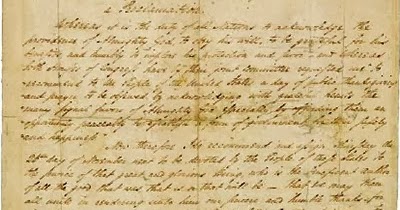 a Proclamation.
Whereas it is the duty of all Nations to acknowledge the
providence of Almighty God, to obey his will, to be grateful for his
benefits, and humbly to implore his protection and favor - and whereas
both Houses of Congress have by their joint Committee requested me "to
recommend to the People of the United States a day of public thanksgiving
and prayer to be observed by acknowledging with grateful hearts the
many signal favors of Almighty God, especially by affording them an
opportunity peaceably to establish a form of government for their safety
and happiness."
Now therefore I do recommend and assign Thursday the
26th day of November next to be devoted by the People of these States to
the service of that great and glorious Being, who is the beneficent author
of all the good that was, that is, or that will be - that we may then
all unite in rendering unto him our sincere and humble thanks for